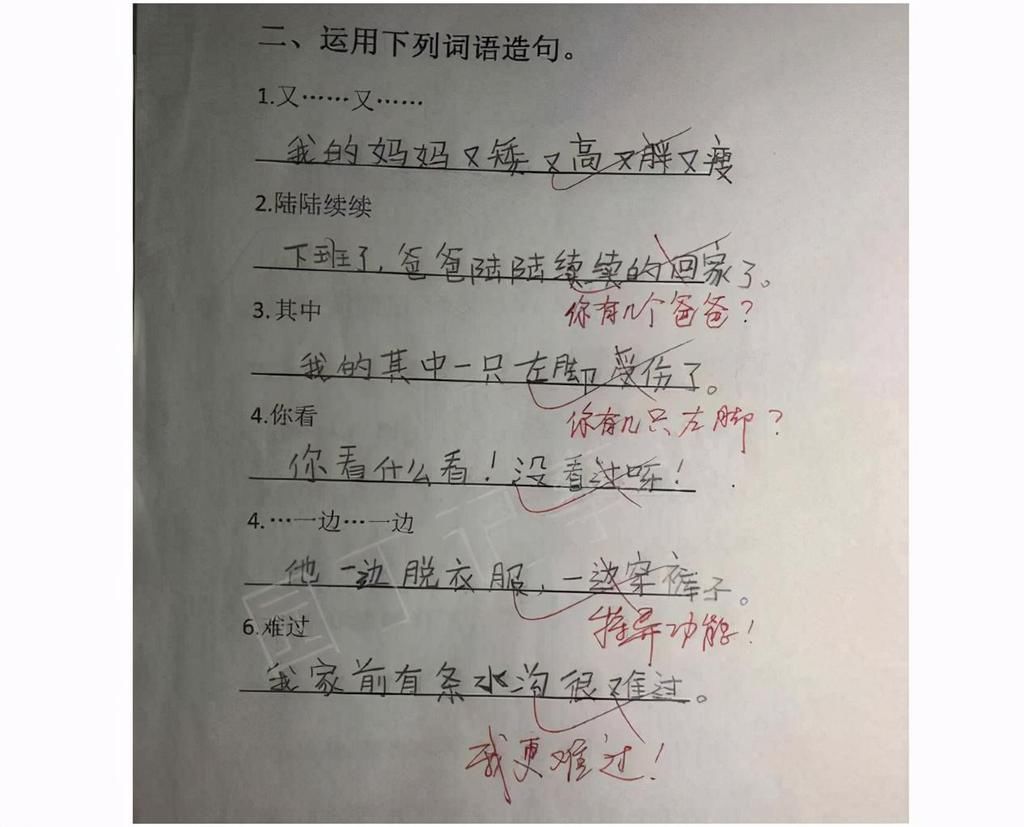 二、运用下列词语造句。
1.又……又……
我的妈妈又矮又高又胖又瘦
2.陆陆续续
下班了，爸爸陆陆续续的回家了。
你有几个爸爸？
3.其中
我的其中一只左脚受伤了。
你有几只左脚？
4.你看
你看什么看！没看过啊！
4.…一边…一边
他一边脱衣服，一边穿裤子。
特异功能！
6.难过
我家前有条水沟很难过。
我更难过！
园丁记事